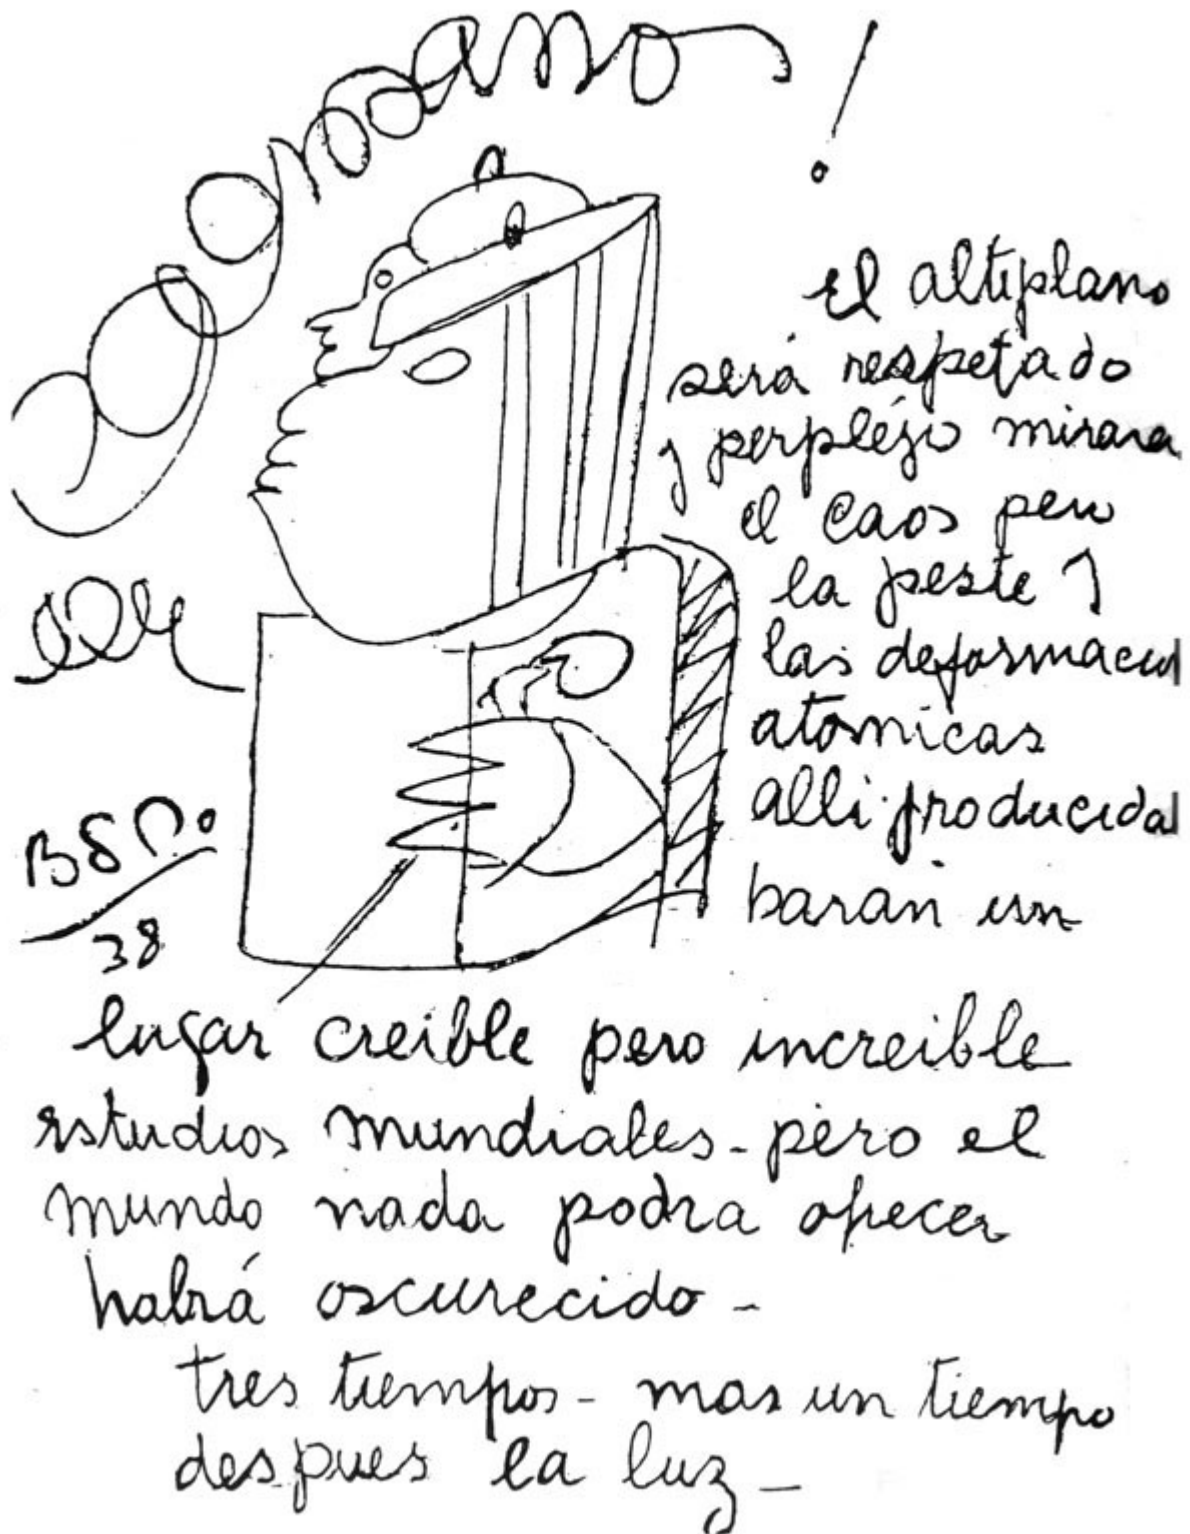 !
El altiplano
será respetado
y perpléjo mirara
el caos pero
la peste y
las deformacio
atomicas
alli producida
baran un
BSP.
38
lugar creible pero increible
estudios mundiales - pero el
mundo nada podra ofrecer
habrá oscurecido -
tres tiempos - mas un tiempo
despues la luz -